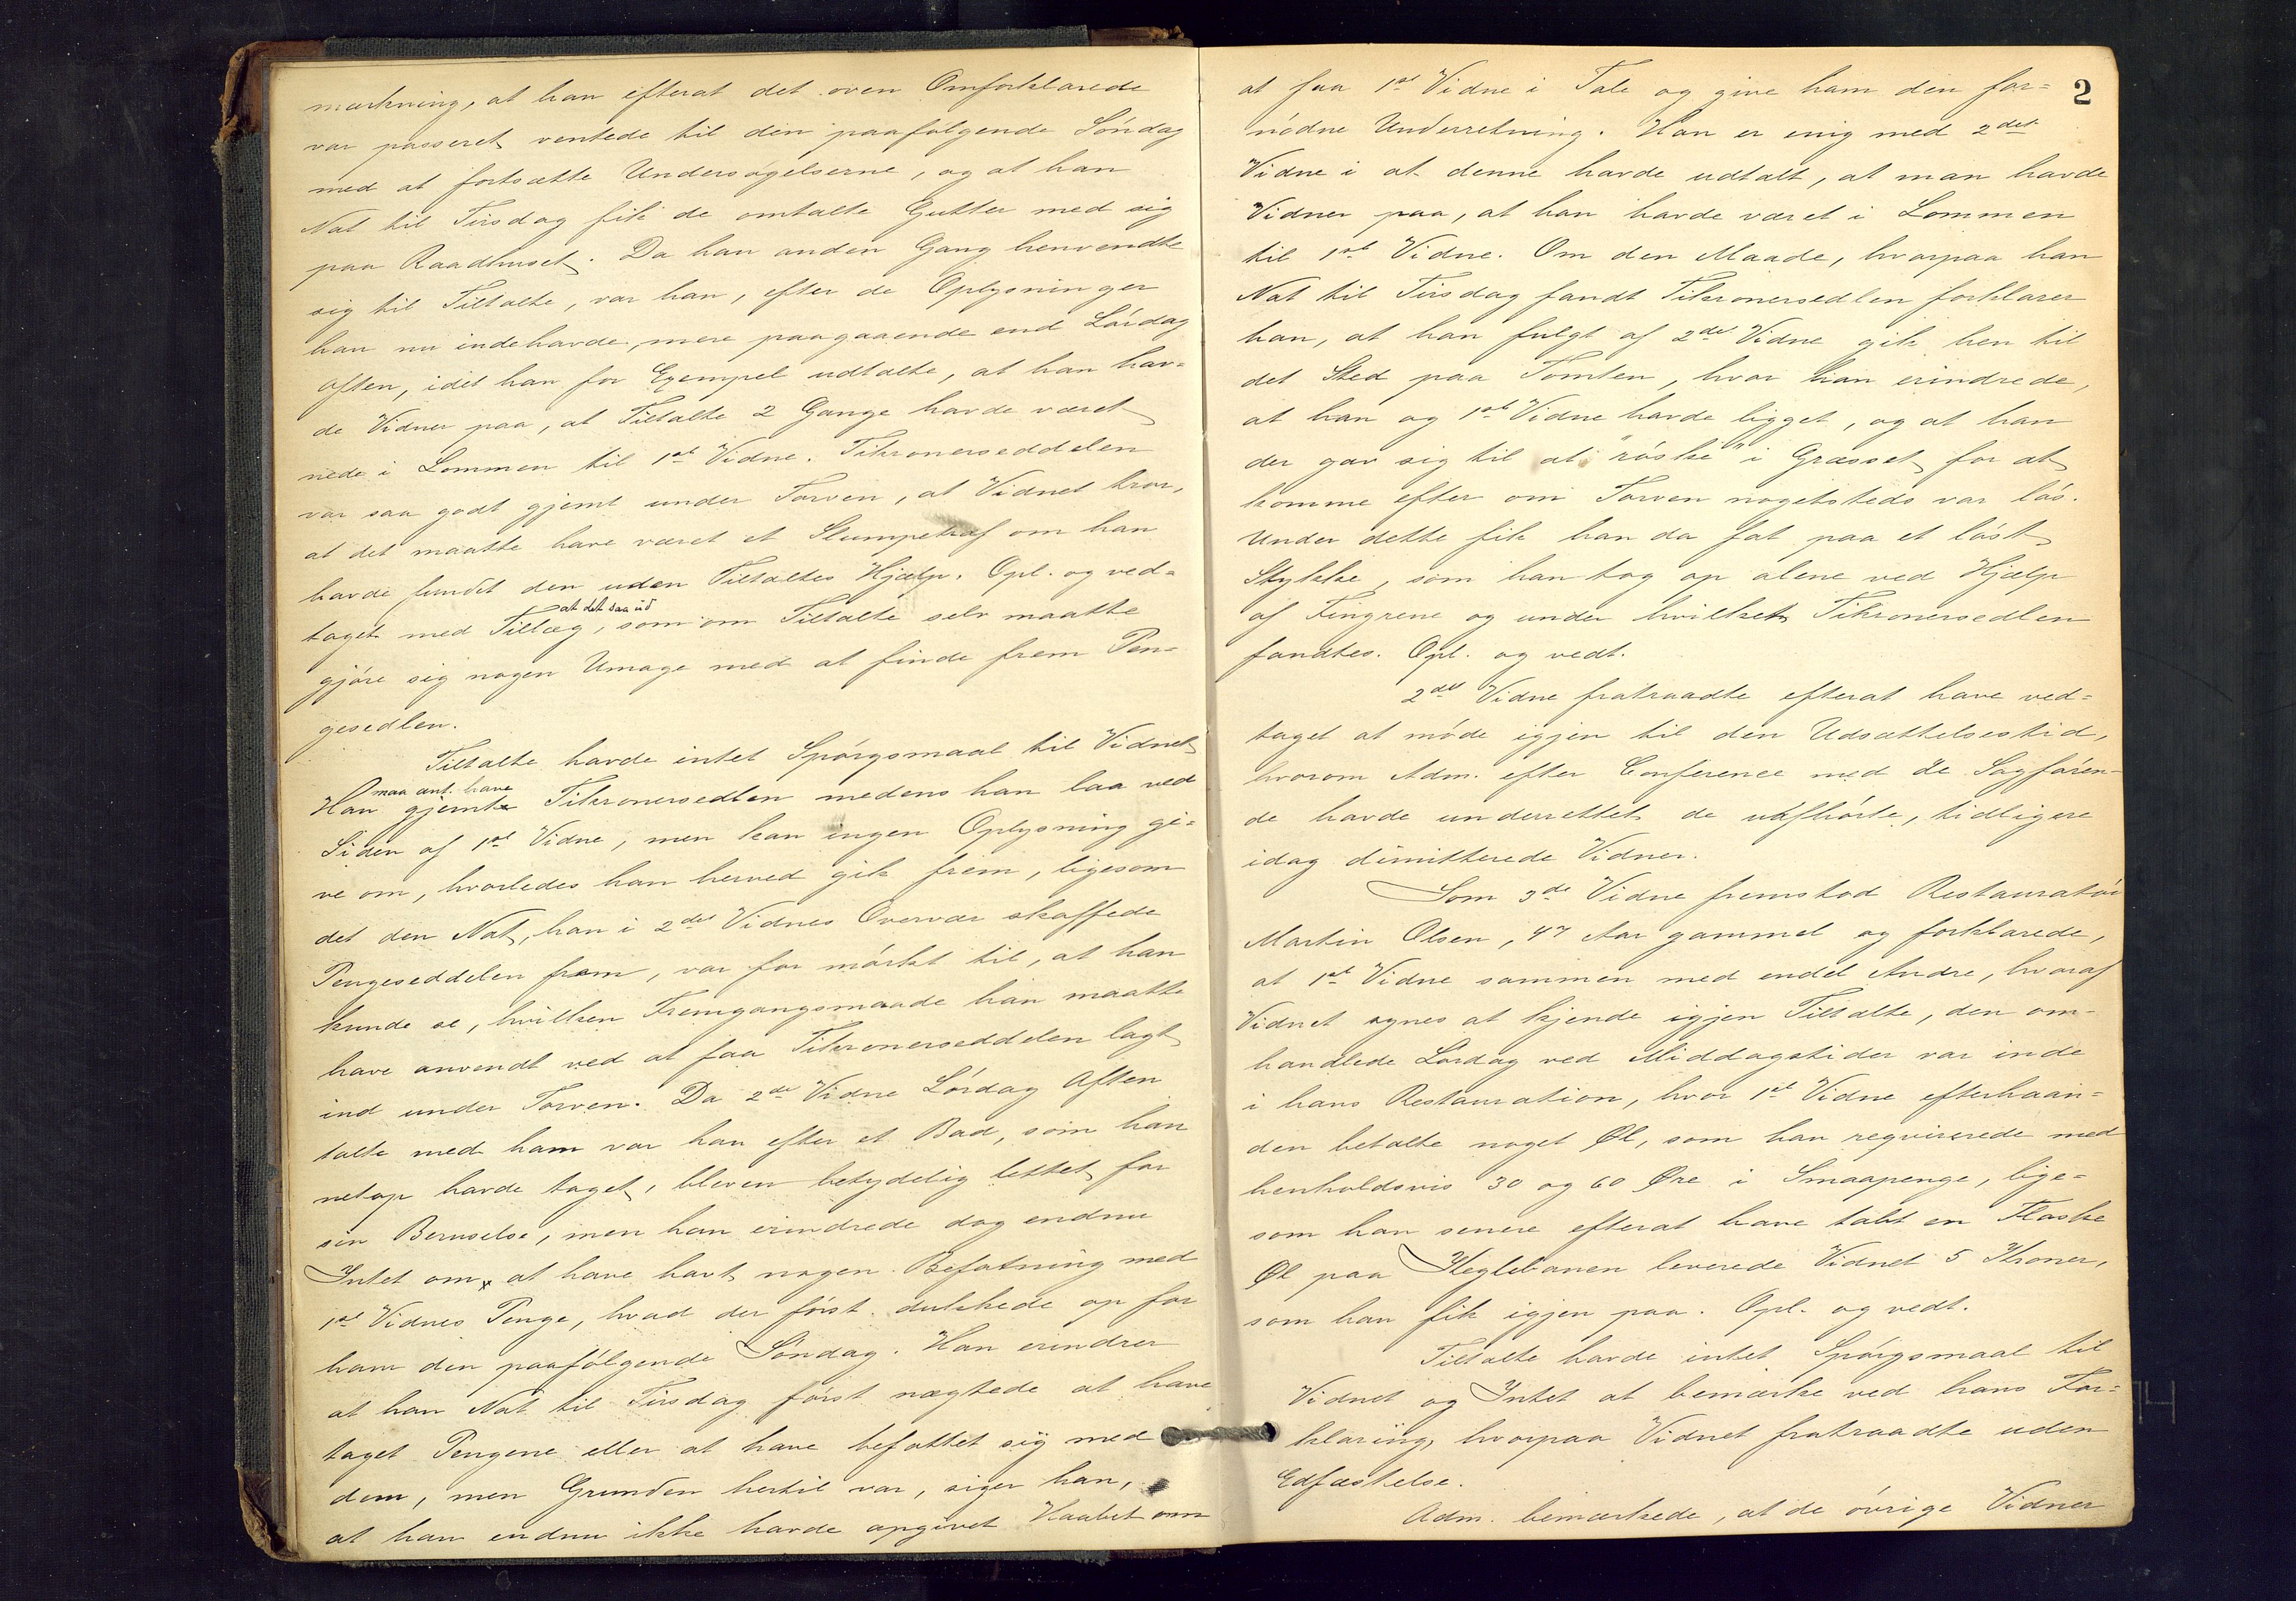 mærkning, at han efterat det oven Omforklarede
var passeret ventede til den paafølgende Söndag
med at fortsætte Undersøgelserne, og at han
Nat til Tirsdag fik de omtalte Gutter med sig
paa Raadhuset. Da han anden Gang henvendte
sig til Tiltalte, var han, efter de Oplysninger
han nu indehavde, mere paagaaende end Lördag
Aften, idet han for Exempel udtalte, at han hav-
de Vidner paa, at Tiltalte 2 Gange havde været
nede i Lommen til 1ste Vidne. Tikronerseddelen
var saa godt gjemt under Torven, at Vidnet tror,
at det maatte have været et Slumpetræf om han
havde fundet den uden Tiltaltes Hjælp. Opl. og ved-
taget med Tillæg, at det saa ud som om Tiltalte selv maatte
gjöre sig nogen Umage med at finde frem Pen-
gesedlen.
Tiltalte havde intet Spörgsmaal til Vidnet
Han maa ant. have gjemt Tikronersedlen medens han laa ved
Siden af 1ste Vidne, men kan ingen Oplysning gi-
ve om, hvorledes han herved gik frem, ligesom
det den Nat, han i 2det Vidnes Overvær skaffede
Pengeseddelen frem, var for mörkt til, at han
kunde se, hvilken Fremgangsmaade han maatte
have anvendt ved at faa Tikronerseddelen lagt
ind under Torven. Da 2de Vidne Lördag Aften
talte med ham var han efter et Bad, som han
netop havde taget, bleven betydelig lettet for
sin Beruselse, men han erindrede dog endnu
Intet om, at have havt nogen Befatning med
1ste Vidnes Penge, hvad der först dukkede op for
ham den paafölgende Söndag. Han erindrer
at han Nat til Tirsdag först nægtede at have
taget Pengene eller at have befattet sig med
dem, men Grunden hertil var, siger han,
at han endnu ikke havde opgivet Haabet om
2
at faa 1ste Vidne i Tale og give ham den for-
nödne Underretning. Han er enig med 2det
Vidne i at denne havde udtalt, at man havde
Vidner paa, at han havde været i Lommen
til 1ste Vidne. Om den Maade, hvorpaa han
Nat til Tirsdag fandt Tikronersedlen forklarer
han, at han fulgt af 2det Vidne gik hen til
det Sted paa Tomten, hvor han erindrede,
at han og 1ste Vidne havde ligget, og at han
der gav sig til at "röske" i Græsset for at
komme efter om Torven nogetsteds var lös.
Under dette fik han da fat paa et löst
Stykke, som han tog op alene ved Hjælp
af Fingrene og under hvilket Tikronersedlen
fandtes. Opl. og vedt.
2det Vidne fratraadte efterat have ved-
taget at möde igjen til den Udsættelsestid,
hvorom Adm. efter Conference med de Sagfören-
de havde underrettet de uafhörte, tidligere
idag dimitterede Vidner.
Som 3de Vidne fremstod Restauratör
Martin Olsen, 47 Aar gammel og forklarede,
at 1ste Vidne sammen med endel Andre, hvoraf
Vidnet synes at kjende igjen Tiltalte, den om-
handlede Lördag ved Middagstider var inde
i hans Restauration, hvor 1ste Vidne efterhaan-
den betalte noget Øl, som han reqvirerede med
henholdsvis 30 og 60 Øre i Smaapenge, lige-
som han senere efterat have tabt en Flaske
Øl paa Keglebanen leverede Vidnet 5 Kroner,
som han fik igjen paa. Opl. og vedt.
Tiltalte havde intet Spörgsmaal til
Vidnet og Intet at bemærke ved hans For-
klaring, hvorpaa Vidnet fratraadte uden
Edfæstelse.
Adm. bemærkede, at de övrige Vidner